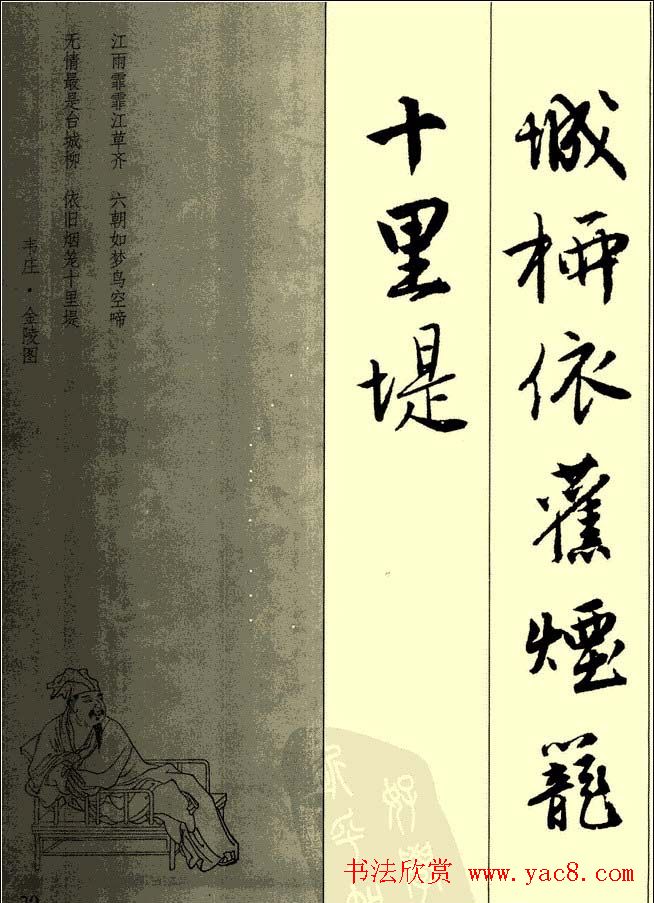 城柳依舊煙籠
十里堤
江雨霏霏江草齐 六朝如梦鸟空啼
无情最是台城柳 依旧烟笼十里堤
韦庄·金陵图
书法欣赏 www.yac8.com